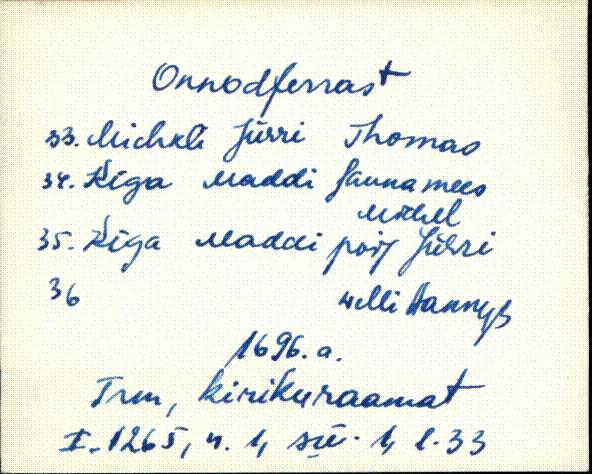 Onnodferrast
33. Michkli Jürri Thomas
34. Kiga Maddi saunamees
Michel
35. Kiga Maddi poig Jürri
36 welli Hannus
1696.a.
Trm, kirikuraamat
I. 1265, n. 1, sü. 1, l. 33